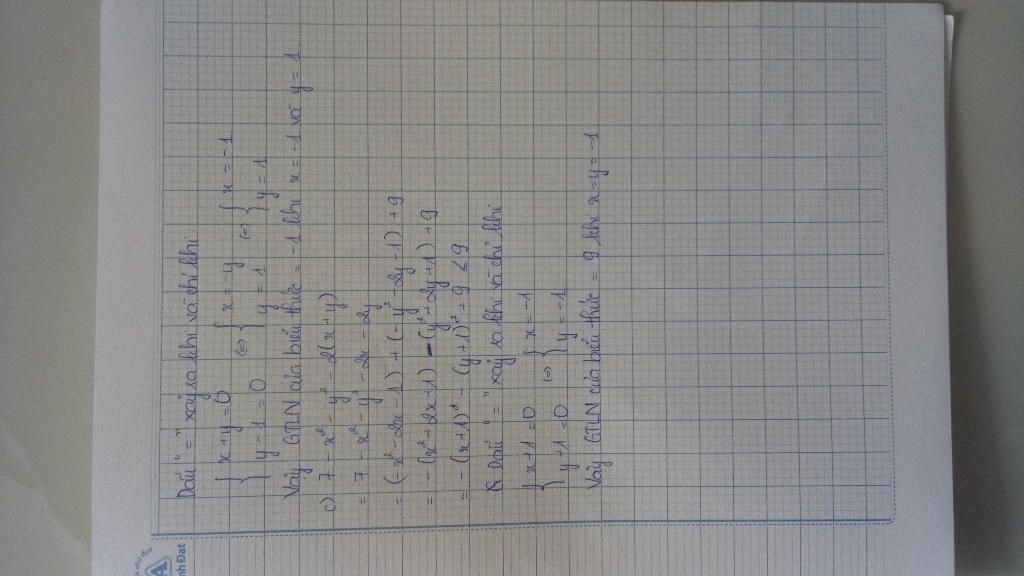 Dấu "=" xảy ra khi và chỉ khi
{ x + y = 0 (=) { x = -y (=) { x = -1
{ y - 1 = 0 { y = 1 { y = 1
Vậy GTLN của biểu thức = -1 khi x = -1 và y = 1
c) 7 - x² - y² - 2(x+y)
= 7 - x² - y² - 2x - 2y
= (-x² - 2x - 1) + (-y² - 2y - 1) + 9
= -(x² + 2x + 1) - (y² + 2y + 1) + 9
= -(x+1)² - (y+1)² + 9 ≤ 9
Dấu "=" xảy ra khi và chỉ khi
{ x + 1 = 0 (=) { x = -1
{ y + 1 = 0 { y = -1
Vậy GTLN của biểu thức = 9 khi x = y = -1
A
nh Đạt